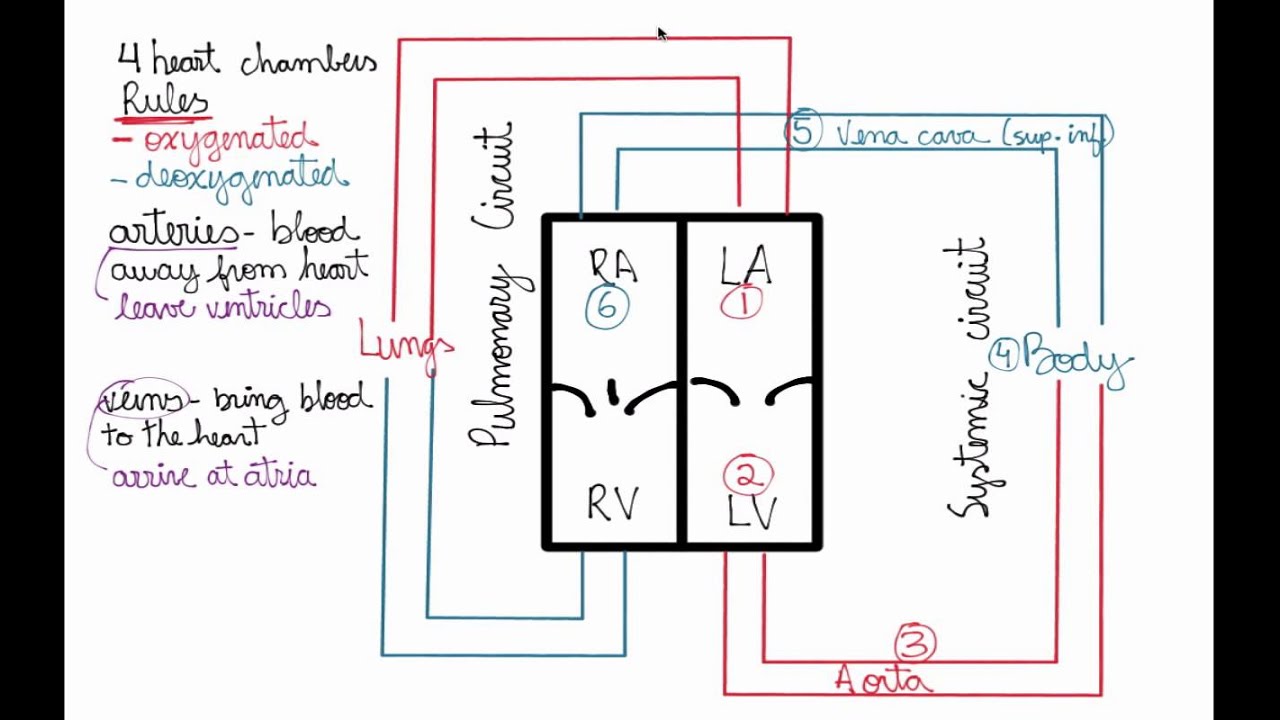 4 heart chambers
Rules
- oxygenated
- deoxygenated
arteries - blood
away from heart
leave ventricles
veins - bring blood
to the heart
arrive at atria
Lungs
Pulmonary Circuit
5 Vena cava (sup. inf)
RA
6
LA
1
RV
2
LV
Systemic circuit
4 Body
3
Aorta